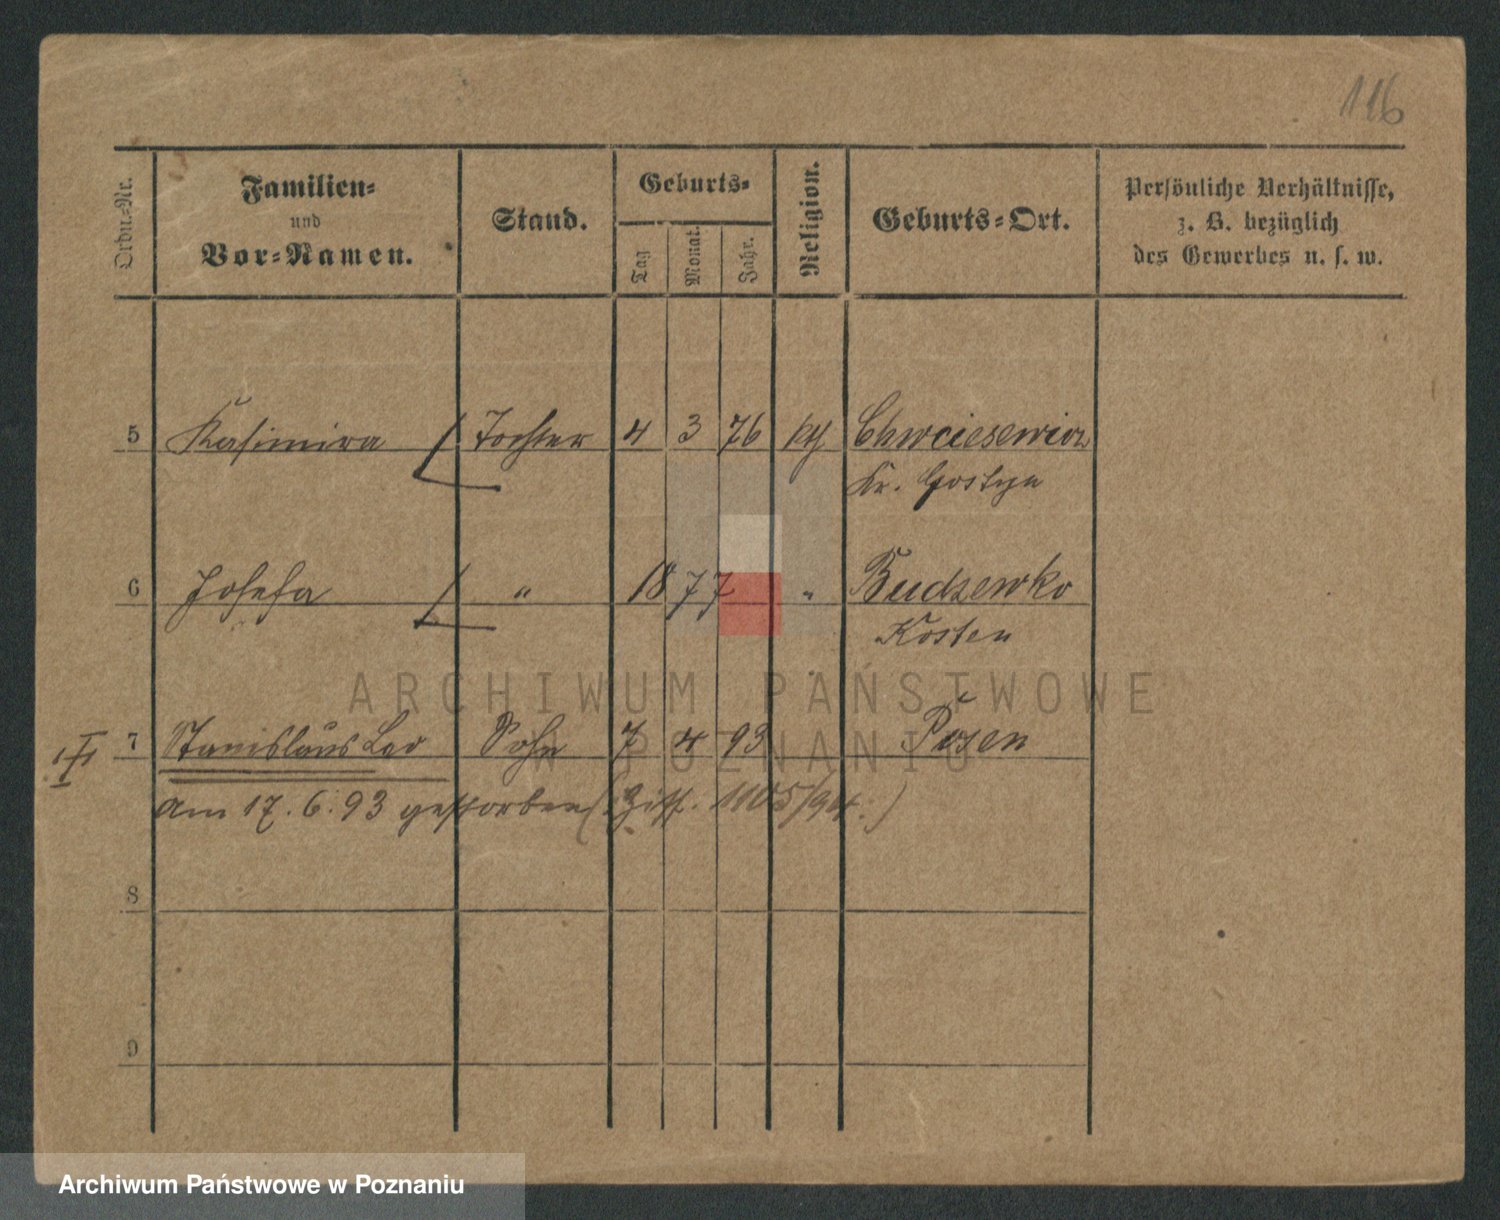 116
Ordn.-Nr.
Familien-
und
Vor-Namen.
Stand.
Geburts-
Tag
Monat.
Jahr.
Religion.
Geburts-Ort.
Persönliche Verhältnisse,
z. B. bezüglich
des Gewerbes u. s. w.
5 Kasimira Tochter 4 3 76 kth
Kr. Gostyn
6 Josefa " 1877 " Budzewko
Kosten
7 Stanislaus Leo Sohn 7 4 93 Posen
am 17. 6. 93 gestorben (: Ziff. 1105/94 :)
8
9
ARCHIWUM PAŃSTWOWE
W POZNANIU
Archiwum Państwowe w Poznaniu